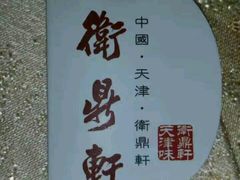 衛鼎軒
中國·天津·衛鼎軒
衛鼎軒
天津味